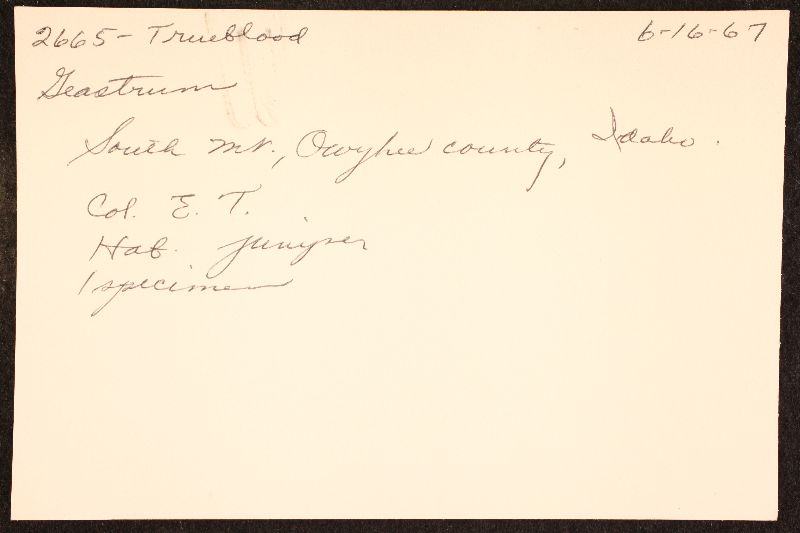 2665- Trueblood 6-16-67
Geastrum
South Mt., Owyhee county, Idaho.
Col. E. T.
Hab. juniper
1 specimen